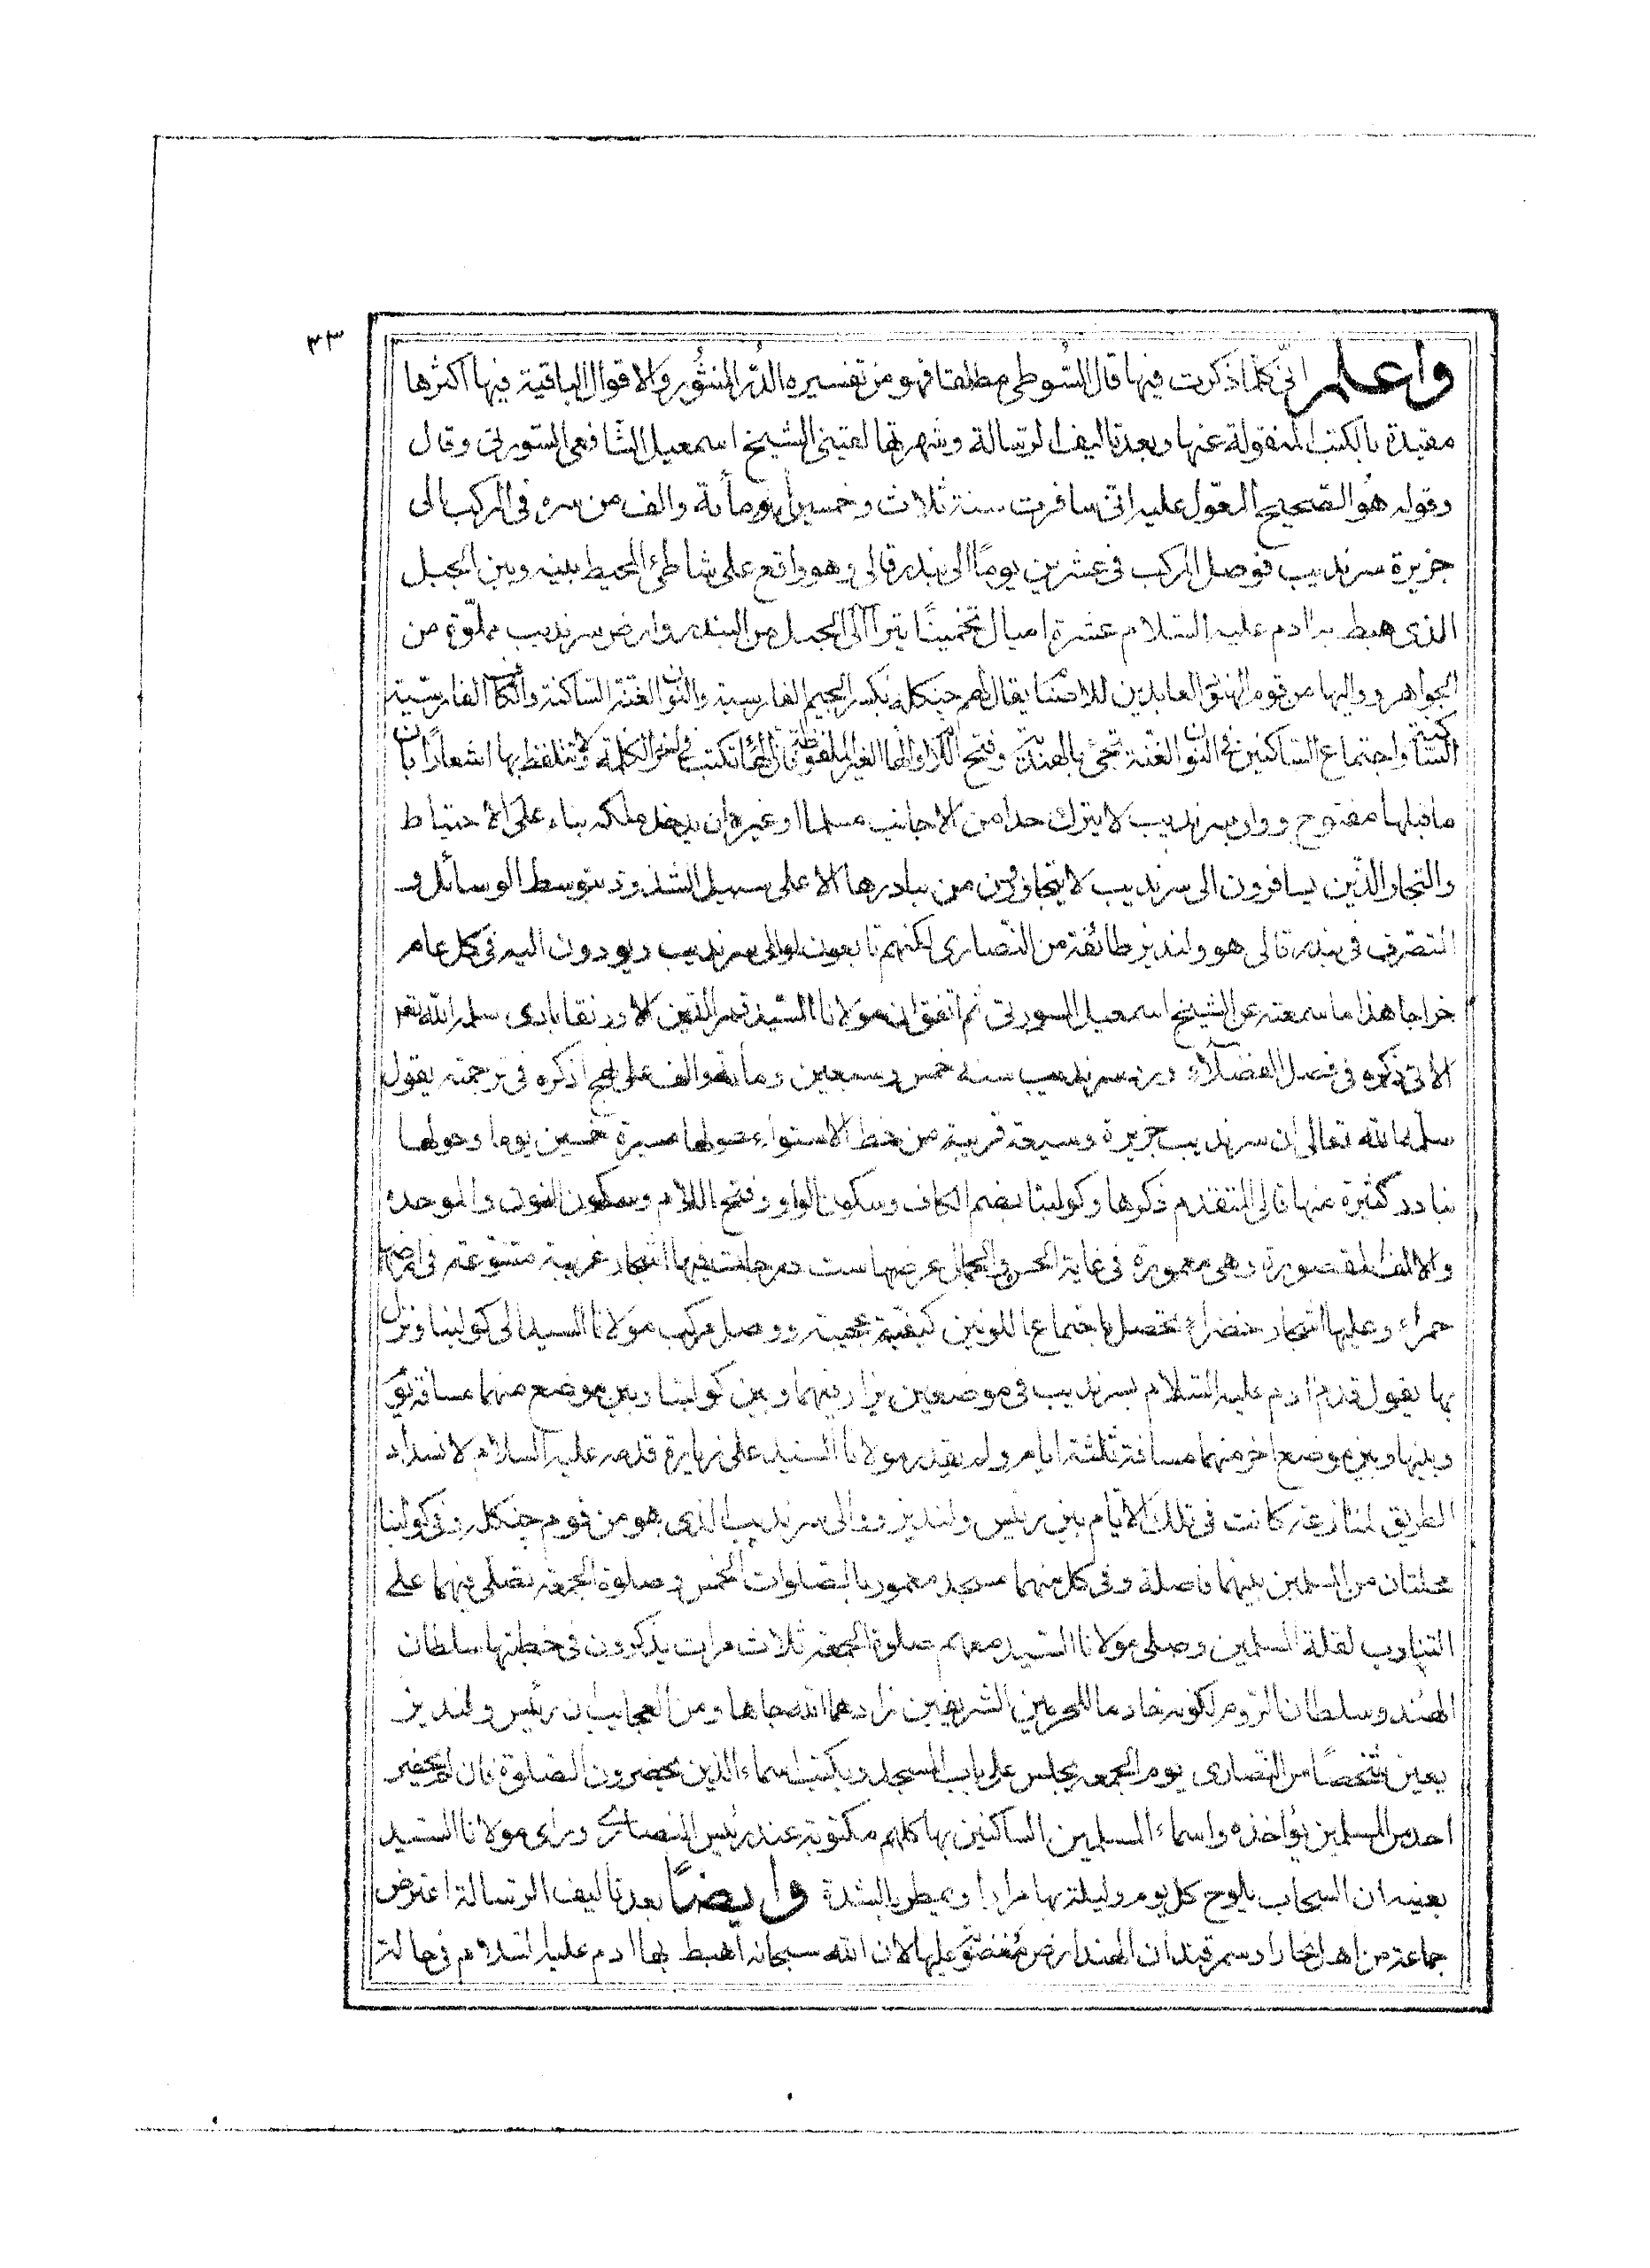 ٣٣
واعلم انّي كلما ذكرت فيها قال السّيوطي مطلقا فهو من تفسيره الدّر المنثور والاقوال الباقية فيها اكثرها
مقيدة بالكتب المنقولة عنها وبعد تاليف الرسالة وشهرتها لقيني الشيخ اسمعيل الشافعي السورتي وقال
وقوله هو الصحيح المعوّل عليه اني سافرت سنة ثلاث وخمسين ومأية والف من سره في المركب الى
جزيرة سرنديب فوصل المركب في عشرين يومًا الى بندر قالى وهو واقع على شاطئ المحيط بينه وبين الجبل
الذي هبط به ادم عليه السّلام عشرة اميال تخمينًا يترا آى الجبل من البندر وارض سرنديب مملوّة من
الجواهر وواليها من قوم الهنود العابدين للاصنام يقال لهم جنكله بكسر الجيم الفارسية والنون الغنّة السّاكنة والكاف الفارسيّة
الساكنة واجتماع السّاكنين في النون الغنّة تجئ بالهندية وفتح اللام والها الغير الملفوظة فان الها تكتب في اخر الكلمة ولا تتلفظ بها اشعارًا بان
ما قبلها مفتوح ووالى سرنديب لا يترك احدا من الاجانب مسلما او غيره ان يدخل ملكه بناء على الاحتياط
والتجار الذين يسافرون الى سرنديب لا يتجاوزون من بنادرها الا على سبيل الشذوذ بتوسط الوسائل و
المتصرف في بندر قالى هو ولنديز طائفة من النّصارى لكنهم تابعون لوالى سرنديب ويودون اليه في كل عام
خراجا هذا ما سمعته عن الشيخ اسمعيل السورتي ثم اتفق ان مولانا السّيد قمر الدّين الاورنقابادى سلمه الله تعم
الاتى ذكره في فصل الفضلآء ورد سرنديب سنة خمس وسبعين ومأية والف على نهج اذكره في ترجمته يقول
سلمه الله تعالى ان سرنديب جزيرة وسيعة قريبة من خط الاستواء حولها مسيرة خمسين يوما وحولها
بنادر كثيرة منها قالى المتقدم ذكرها وكولنبا بضم الكاف وسكون الواو وفتح اللام وسكون النون والموحدة
والالف المقصورة وهى معمورة في غاية الحسن والجمال عرضها ست درجات فيها اشجار غريبة متنوعة في ارض
حمراء وعليها اشجار خضراء تحصل باجتماع اللونين كيفيّة عجيبة ووصل مركب مولانا السيد الى كولنبا ونزل
بها يقول قدم ادم عليه السّلام بسرنديب في موضعين يزار بينهما وبين كولنبا وبين موضع منهما مسافة يوم
وبينها وبين موضع اخر منهما مسافة ثلثة ايام ولم يقدر مولانا السيد على زيارة قدمه عليه السلام لانسداد
الطريق لمنازعة كانت في تلك الايام بين رئيس ولنديز ووالى سرنديب الذي هو من قوم جنكله وفي كولنبا
محلتان من المسلمين بينهما فاصلة وفي كل منهما مسجد معمور بالصّلوات الخمس وصلوة الجمعة تصلّى فيهما على
التناوب لقلة المسلمين وصلى مولانا السّيد معهم صلوة الجمعة ثلاث مرات يذكرون في خطبتها سلطان
الهند وسلطان الروم لكونه خادما للحرمين الشريفين زادهما الله جاها ومن العجايب ان رئيس ولنديز
يعين شخصًا من النصارى يوم الجمعة يجلس على باب المسجد ويكتب اسماء الذين يحضرون الصّلوة فان لم يحضر
احد من المسلمين يؤاخذه واسماء المسلمين الساكنين بها كلهم مكتوبة عند رئيس النصارى وراى مولانا السّيد
بعينه ان السحاب يلوح كل يوم وليلة بها مرارا ويمطر بالشدة وايضًا بعد تاليف الرّسالة اعترض
جماعة من اهل بخارا وسمرقند ان الهند ارض مغضوب عليها لان الله سبحانه اهبط بها ادم عليه السّلام في حالة